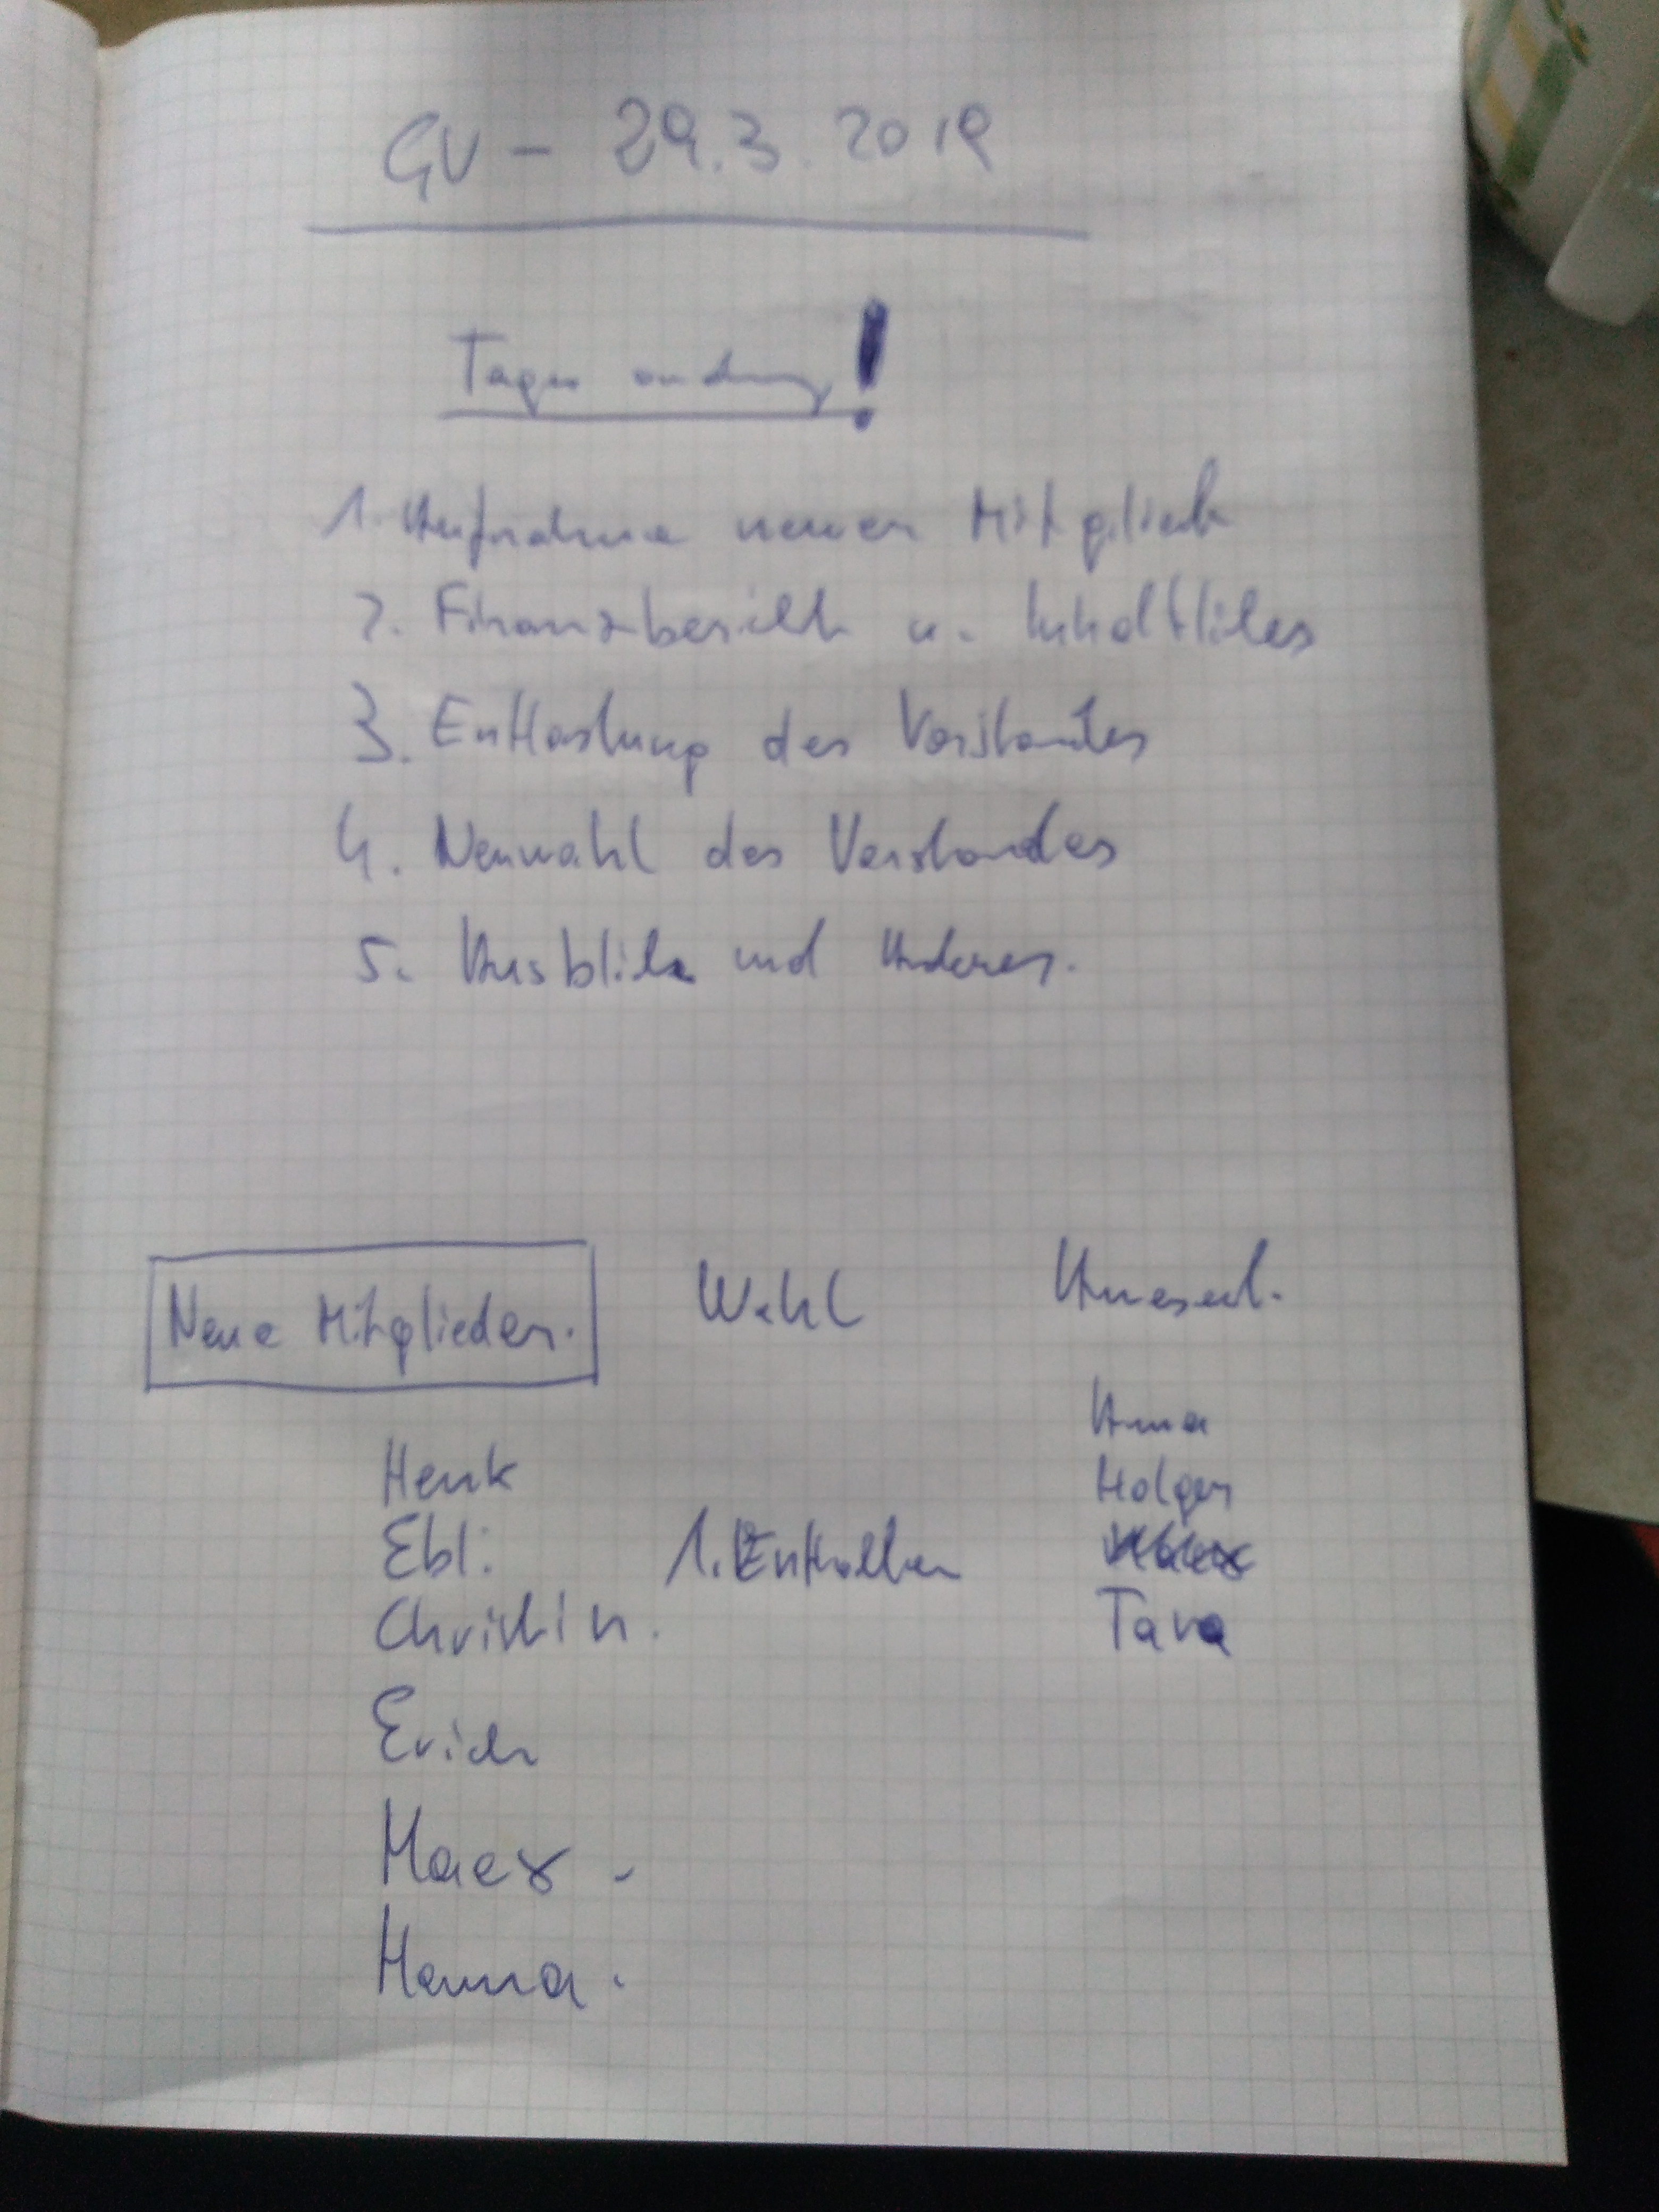 GV - 29.3.2019
Tagesordnung!
1. Aufnahme neuer Mitglieder
2. Finanzbericht u. Inhaltliches
3. Entlastung des Vorstandes
4. Neuwahl des Vorstandes
5. Ausblick und Anderes.
Neue Mitglieder. Wahl Anwesend.
Anna
Henk Holger
Ebli 1. Enthalten
Christin. Tara
Erich
Maex -
Hanna.